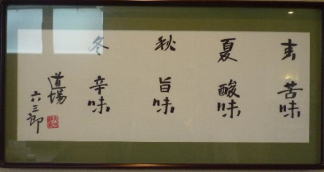 春 苦味
夏 酸味
秋 旨味
冬 辛味
道場
六三郎